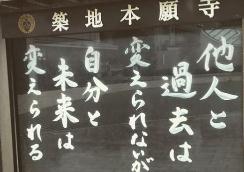 築地本願寺
他人と
過去は
変えられないが
自分と
未来は
変えられる